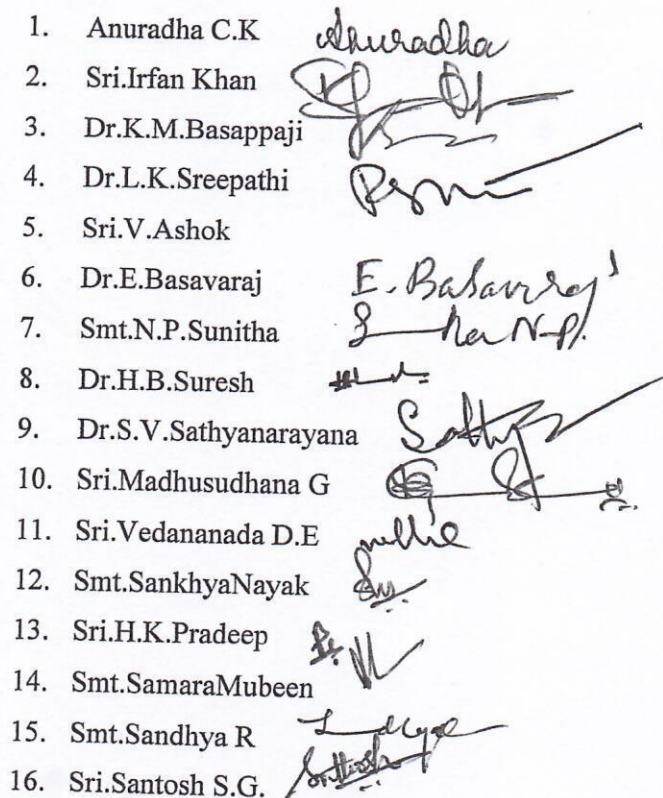 1. Anuradha C.K Anuradha
2. Sri.Irfan Khan
3. Dr.K.M.Basappaji
4. Dr.L.K.Sreepathi
5. Sri.V.Ashok
6. Dr.E.Basavaraj E. Basavaraj
7. Smt.N.P.Sunitha N.P.
8. Dr.H.B.Suresh
9. Dr.S.V.Sathyanarayana Sathy
10. Sri.Madhusudhana G
11. Sri.Vedananada D.E
12. Smt.SankhyaNayak
13. Sri.H.K.Pradeep
14. Smt.SamaraMubeen
15. Smt.Sandhya R
16. Sri.Santosh S.G. Santosh